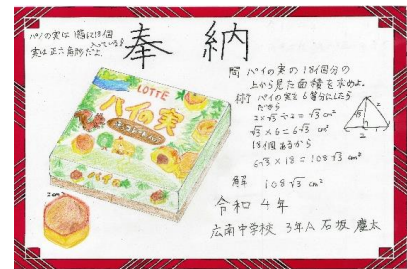 奉納
パイの実は1箱に18個
入っている。
実は正六角形だよ。
LOTTE
パイの実
パイの実
2cm
問 パイの実の18個分の
上から見た面積を求めよ。
パイの実を6等分にしたら
だから
2×√3÷2=√3 cm²
√3×6=6√3 cm²
18個あるから
6√3×18=108√3 cm²
2
√3
2
解 108√3 cm²
令和4年
広南中学校 3年A 石坂 慶太